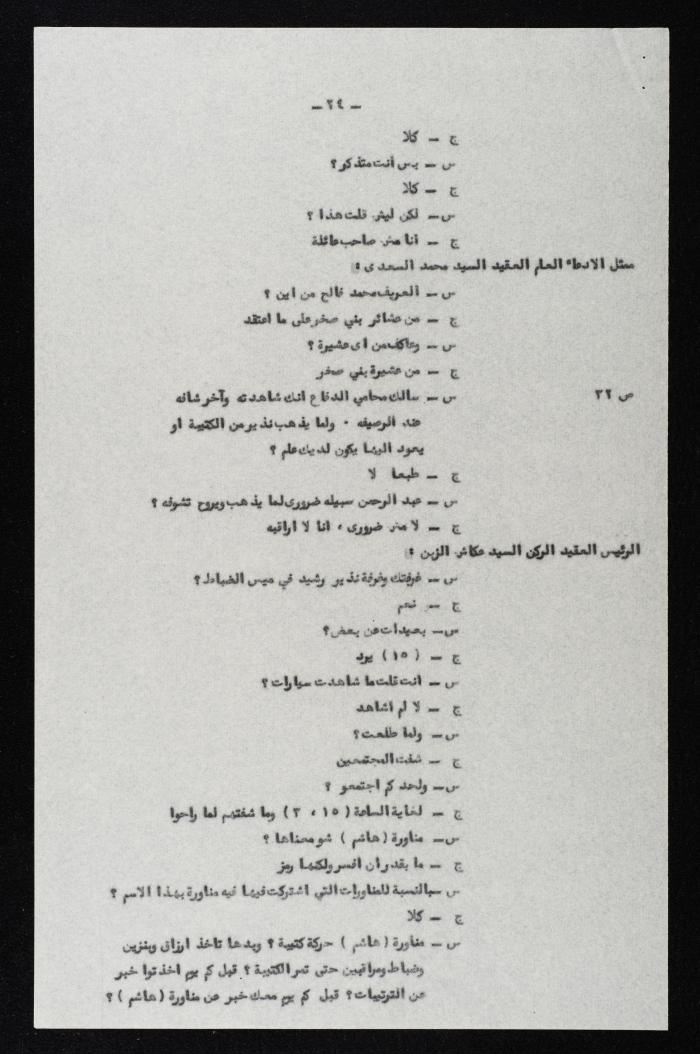 - ٢٤ -
ج - كلا
س - بس أنت متذكر ؟
ج - كلا
س - لكن ليش قلت هذا ؟
ج - انا مش صاحب عائلة
ممثل الادعاء العام العقيد السيد محمد السعدى :
س - العريف محمد فالح من اين ؟
ج - من عشائر بني صخر على ما اعتقد
س - وعاكف من اى عشيرة ؟
ج - من عشيرة بني صخر
ص ٣٢ س - سالك محامي الدفاع انك شاهدته وآخر شافه
عند الرصيفه ٠ ولما يذهب نذير من الكتيبة او
يعود اليها يكون لديك علم ؟
ج - طبعا لا
س - عبد الرحمن سبيله ضرورى لما يذهب ويروح تشوفه ؟
ج - لا مش ضرورى ، انا لا اراقبه
الرئيس العقيد الركن السيد عكاش الزبن :
س - غرفتك وغرفة نذير رشيد في ميس الضباط ؟
ج - نعم
س - بعيدات عن بعض ؟
ج - ( ١٥ ) يرد
س - انت قلت ما شاهدت سيارات ؟
ج - لا لم اشاهد
س - ولما طلعت ؟
ج - شفت المجتمعين
س - ولحد كم اجتمعو ؟
ج - لغاية الساعة ( ١٥ ، ٣ ) وما شفتهم لما راحوا
س - مناورة ( هاشم ) شو معناها ؟
ج - ما بقدر ان افسر ولكنها رمز
س - بالنسبة للمناورات التي اشتركت فيها فيه مناورة بهذا الاسم ؟
ج - كلا
س - مناورة ( هاشم ) حركة كتيبة ؟ وبدها تاخذ ارزاق وبنزين
وضباط ومراقبين حتى تمر الكتيبة ؟ قبل كم يوم اخذتوا خبر
عن الترتيبات ؟ قبل كم يوم معك خبر عن مناورة ( هاشم ) ؟